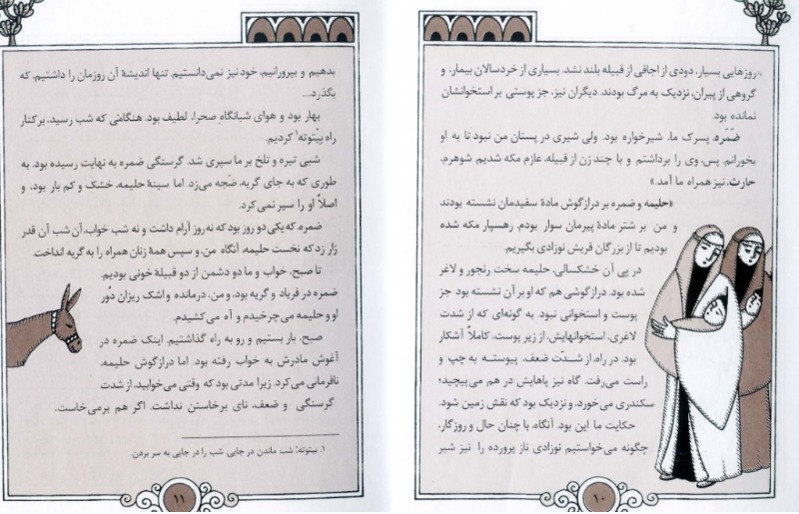 روزهایی بسیار، دودی از اجاقی از قبیله بلند نشد. بسیاری از خردسالان بیمار، و
گروهی از پیران، نزدیک به مرگ بودند. دیگران نیز، جز پوستی بر استخوانشان
نمانده بود.
ضَمَره، پسرک ما، شیرخواره بود. ولی شیری در پستان من نبود تا به او
بخورانم. پس، وی را برداشتم و با چند زن از قبیله، عازم مکه شدیم. شوهرم،
حارث، نیز همراه ما آمد.»
«حلیمه و ضمره بر درازگوش مادهٔ سفیدمان نشسته بودند
و من بر شتر مادهٔ پیرمان سوار بودم. رهسپار مکه شده
بودیم تا از بزرگان قریش نوزادی بگیریم.
در پی آن خشکسالی، حلیمه سخت رنجور و لاغر
شده بود. درازگوشی هم که او بر آن نشسته بود جز
پوست و استخوانی نبود. به گونه‌ای که از شدت
لاغری، استخوانهایش، از زیر پوست، کاملاً آشکار
بود. در راه، از شدّت ضعف، پیوسته به چپ و
راست می‌رفت. گاه نیز پاهایش در هم می‌پیچید؛
سکندری می‌خورد، و نزدیک بود که نقش زمین شود.
حکایت ما این بود. آنگاه، با چنان حال و روزگار،
چگونه می‌خواستیم نوزادی ناز پرورده را نیز شیر
۱۰
بدهیم و بپرورانیم، خود نیز نمی‌دانستیم. تنها اندیشهٔ آن روزمان را داشتیم، که
بگذرد...
بهار بود و هوای شبانگاهِ صحرا، لطیف بود. هنگامی که شب رسید، بر کنار
راه بیْتوته۱ کردیم.
شبی تیره و تلخ بر ما سپری شد. گرسنگی ضمره به نهایت رسیده بود. به
طوری که به جای گریه، ضجّه می‌زد. اما سینهٔ حلیمه، خشک و کم بار بود، و
اصلاً او را سیر نمی‌کرد.
ضمره که یکی دو روز بود که نه روز آرام داشت و نه شب خواب، آن شب آن قدر
زار زد که نخست حلیمه، آنگاه من، و سپس همهٔ زنان همراه را به گریه انداخت.
تا صبح، خواب و ما دو دشمن از دو قبیلهٔ خونی بودیم.
ضمره در فریاد و گریه بود، و من، درمانده و اشک ریزان دُور
او و حلیمه می‌چرخیدم و آه می‌کشیدم.
صبح، بار بستیم و رو به راه گذاشتیم. اینک ضمره در
آغوش مادرش به خواب رفته بود. اما درازگوش حلیمه،
نافرمانی می‌کرد. زیرا مدتی بود که وقتی می‌خوابید، از شدت
گرسنگی و ضعف، نای برخاستن نداشت. اگر هم برمی‌خاست،
۱. بیتوته: شب ماندن در جایی. شب را در جایی به سر بردن.
۱۱